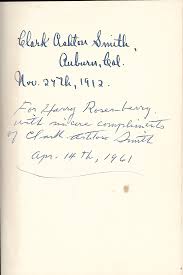 Clark Ashton Smith,
Auburn, Cal.
Nov. 27th, 1912.
For Henry Rosenberry
with sincere compliments
of Clark Ashton Smith
Apr. 14th, 1961